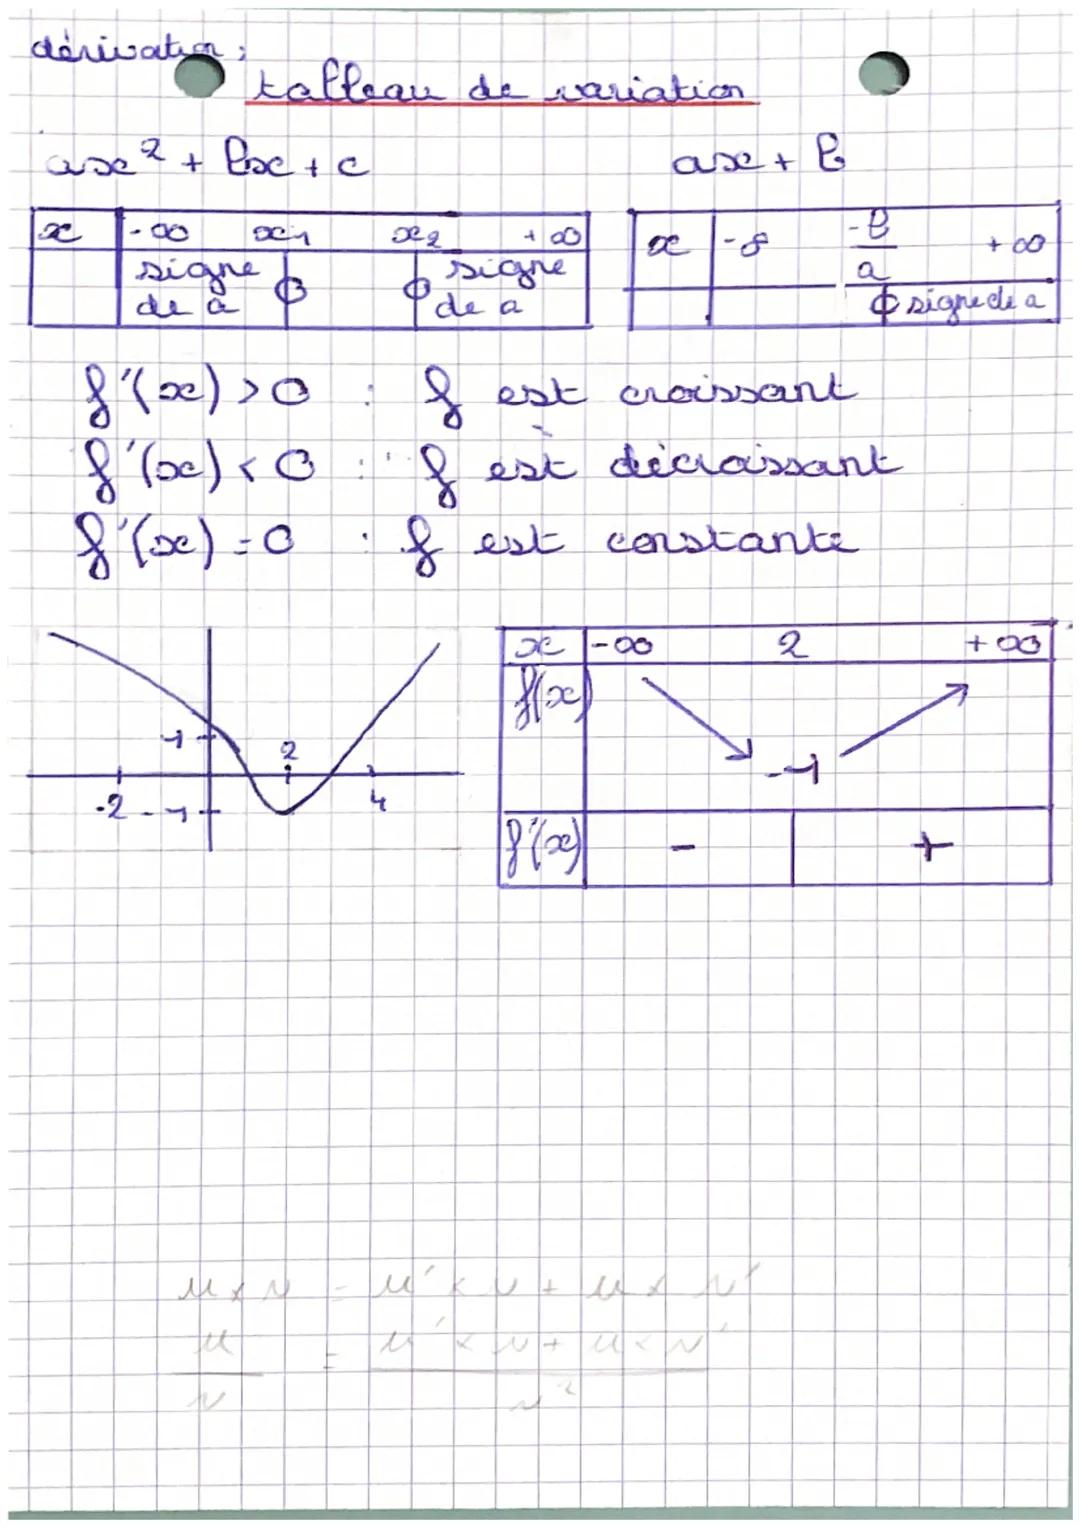 dérivation :
tableau de variation
ax² + bx + c
ax + b
x -∞ x1 x2 +∞
signe de a 0 0 signe de a
x -∞ -b/a +∞
0 signe de a
f'(x) > 0 : f est croissant
f'(x) < 0 : f est décroissant
f'(x) = 0 : f est constante
1
2
-2 -1 4
x -∞ 2 +∞
f(x) -1
f'(x) - +
u x v = u' x v + u x v'
u/v = u' x v + u x v' / v²